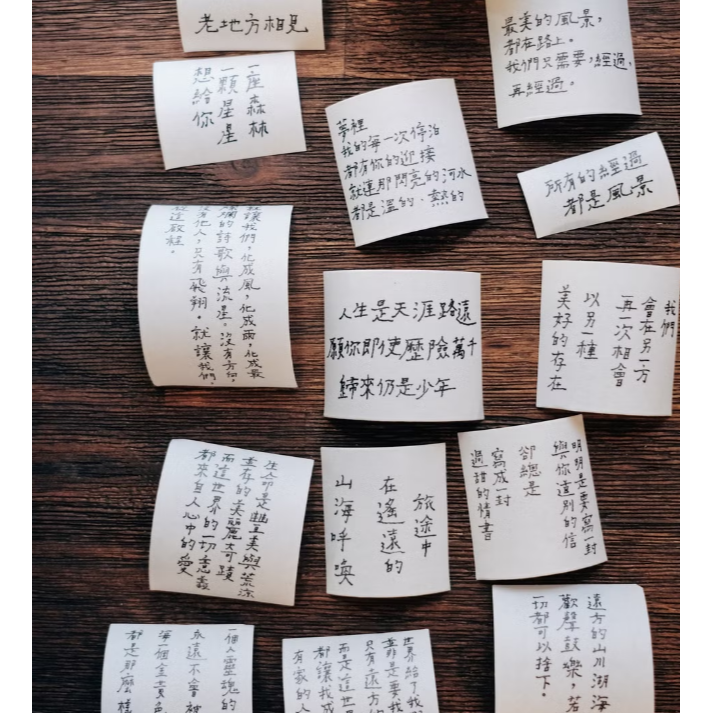 老地方相見
一座森林
一顆星星
想給你
最美的風景,
都在路上。
我們只需要,經過,
再經過。
夢裡
我的每一次停泊
都有你的迎接
就連那閃亮的河水
都是溫的、熱的
所有的經過
都是風景
就讓我們,化成風,化成雨,化成最
燦爛的詩歌與流浬。沒有方向,
沒有他人,只有飛翔。就讓我們,
就這啟程。
人生是天涯路遠
願你即使歷險萬千
歸來仍是少年
我們
會在另一方
再一次相會
以另一種
美好的存在
生命是豐美與荒涼
並存的美麗奇蹟
而這世界的一切意義
都來自人心中的愛
旅途中
在遙遠的
山海呼喚
明明是要寫一封
與你道別的信
卻總是
寫成一封
過譜的情書
遠方的山川湖海
歡聲鼓樂,若
一切都可以捨下。
一個人靈魂的
永遠不會被
每一個金黃色
都是那麼樣
世界給了我
靠是要我
只有遠方
而是這世
都讓我或
有家的人